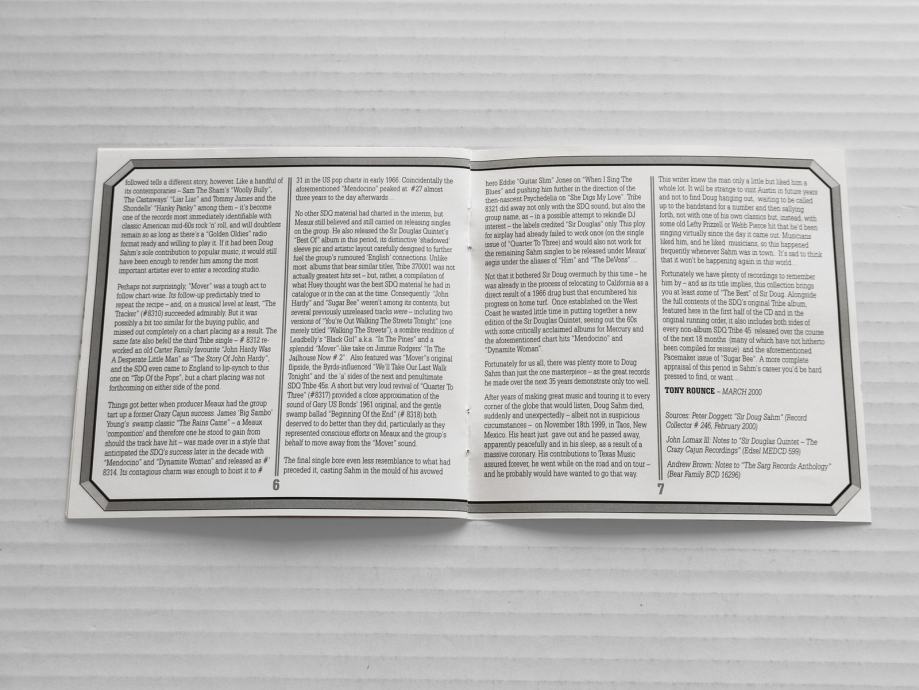 followed tells a different story, however. Like a handful of
its contemporaries – Sam The Sham's "Woolly Bully",
The Castaways' "Liar Liar" and Tommy James and the
Shondells' "Hanky Panky" among them – it's become
one of the records most immediately identifiable with
classic American mid-60s rock 'n' roll, and will doubtless
remain so as long as there's a "Golden Oldies" radio
format ready and willing to play it. If it had been Doug
Sahm's sole contribution to popular music, it would still
have been enough to render him among the most
important artistes ever to enter a recording studio.
Perhaps not surprisingly, "Mover" was a tough act to
follow chart-wise. Its follow-up predictably tried to
repeat the recipe – and, on a musical level at least, "The
Tracker" (#8310) succeeded admirably. But it was
possibly a bit too similar for the buying public, and
missed out completely on a chart placing as a result. The
same fate also befell the third Tribe single – # 8312 re-
worked an old Carter Family favourite "John Hardy Was
A Desperate Little Man" as "The Story Of John Hardy",
and the SDQ even came to England to lip-synch to this
one on "Top Of the Pops", but a chart placing was not
forthcoming on either side of the pond.
Things got better when producer Meaux had the group
tart up a former Crazy Cajun success. James 'Big Sambo'
Young's swamp classic "The Rains Came" – a Meaux
'composition' and therefore one he stood to gain from
should the track have hit – was made over in a style that
anticipated the SDQ's success later in the decade with
"Mendocino" and "Dynamite Woman" and released as #'
8314. Its contagious charm was enough to hoist it to #
31 in the US pop charts in early 1966. Coincidentally the
aforementioned "Mendocino" peaked at #27 almost
three years to the day afterwards ...
No other SDQ material had charted in the interim, but
Meaux still believed and still carried on releasing singles
on the group. He also released the Sir Douglas Quintet's
"Best Of" album in this period, its distinctive 'shadowed'
sleeve pic and artistic layout carefully designed to further
fuel the group's rumoured 'English' connections. Unlike
most albums that bear similar titles, Tribe 370001 was not
actually greatest hits set – but, rather, a compilation of
what Huey thought was the best SDQ material he had in
catalogue or in the can at the time. Consequently "John
Hardy" and "Sugar Bee" weren't among its contents, but
several previously unreleased tracks were – including two
versions of "You're Out Walking The Streets Tonight" (one
merely titled "Walking The Streets"), a sombre rendition of
Leadbelly's "Black Girl" a.k.a. "In The Pines" and a
splendid "Mover"-like take on Jimmie Rodgers' "In The
Jailhouse Now # 2". Also featured was "Mover"s original
flipside, the Byrds-influenced "We'll Take Our Last Walk
Tonight" and the 'a' sides of the next and penultimate
SDQ Tribe 45s. A short but very loud revival of "Quarter To
Three" (#8317) provided a close approximation of the
sound of Gary US Bonds' 1961 original, and the gentle
swamp ballad "Beginning Of the End" (# 8318) both
deserved to do better than they did, particularly as they
represented conscious efforts on Meaux and the group's
behalf to move away from the "Mover" sound.
The final single bore even less resemblance to what had
preceded it, casting Sahm in the mould of his avowed
6
hero Eddie "Guitar Slim" Jones on "When I Sing The
Blues" and pushing him further in the direction of the
then-nascent Psychedelia on "She Digs My Love". Tribe
8321 did away not only with the SDQ sound, but also the
group name, as – in a possible attempt to rekindle DJ
interest – the labels credited "Sir Douglas" only. This ploy
for airplay had already failed to work once (on the single
issue of "Quarter To Three") and would also not work for
the remaining Sahm singles to be released under Meaux'
aegis under the aliases of "Him" and "The DeVons" ...
Not that it bothered Sir Doug overmuch by this time – he
was already in the process of relocating to California as a
direct result of a 1966 drug bust that encumbered his
progress on home turf. Once established on the West
Coast he wasted little time in putting together a new
edition of the Sir Douglas Quintet, seeing out the 60s
with some critically acclaimed albums for Mercury and
the aforementioned chart hits "Mendocino" and
"Dynamite Woman".
Fortunately for us all, there was plenty more to Doug
Sahm than just the one masterpiece – as the great records
he made over the next 35 years demonstrate only too well.
After years of making great music and touring it to every
corner of the globe that would listen, Doug Sahm died,
suddenly and unexpectedly – albeit not in suspicious
circumstances – on November 18th 1999, in Taos, New
Mexico. His heart just gave out and he passed away,
apparently peacefully and in his sleep, as a result of a
massive coronary. His contributions to Texas Music
assured forever, he went while on the road and on tour –
and he probably would have wanted to go that way.
This writer knew the man only a little but liked him a
whole lot. It will be strange to visit Austin in future years
and not to find Doug hanging out, waiting to be called
up to the bandstand for a number and then sallying
forth, not with one of his own classics but, instead, with
some old Lefty Frizzell or Webb Pierce hit that he'd been
singing virtually since the day it came out. Musicians
liked him, and he liked musicians, so this happened
frequently whenever Sahm was in town. It's sad to think
that it won't be happening again in this world...
Fortunately we have plenty of recordings to remember
him by – and as its title implies, this collection brings
you at least some of "The Best" of Sir Doug. Alongside
the full contents of the SDQ's original Tribe album,
featured here in the first half of the CD and in the
original running order, it also includes both sides of
every non-album SDQ Tribe 45 released over the course
of the next 18 months (many of which have not hitherto
been compiled for reissue) and the aforementioned
Pacemaker issue of "Sugar Bee". A more complete
appraisal of this period in Sahm's career you'd be hard
pressed to find, or want...
TONY ROUNCE – MARCH 2000
Sources: Peter Doggett "Sir Doug Sahm" (Record
Collector # 246, February 2000)
John Lomax III: Notes to "Sir Douglas Quintet – The
Crazy Cajun Recordings" (Edsel MEDCD 599)
Andrew Brown: Notes to "The Sarg Records Anthology"
(Bear Family BCD 16296)
7